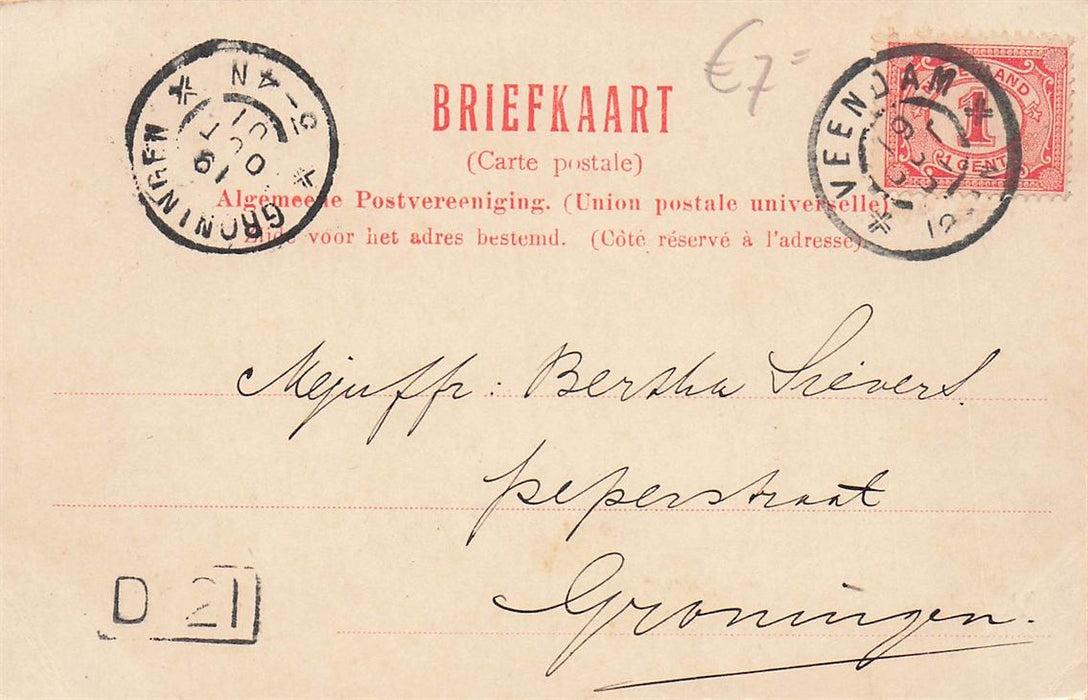 €7=
BRIEFKAART
(Carte postale)
Algemeene Postvereeniging. (Union postale universelle)
Zijde voor het adres bestemd. (Côté réservé à l'adresse)
GRONINGEN
5-4N
VEENDAM
NEDERLAND
1
1 CENT
Mejuffr: Bertha Sievers.
peperstraat
Groningen.
D 21